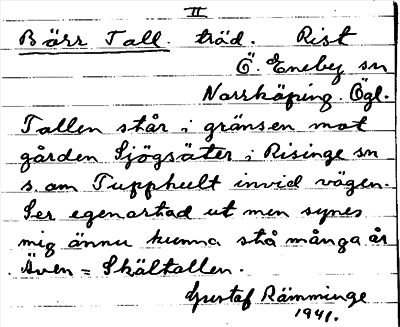 II
Bärr Tall. träd. Rist
Ö. Eneby sn
Norrköping. Ögl.
Tallen står i gränsen mot
gården Sjögsäter i Risinge sn
s. om Tupphult invid vägen.
Ser egenartad ut men synes
mig ännu kunna stå många år
Även = Skältallen.
Gustaf Rämminge
1941.